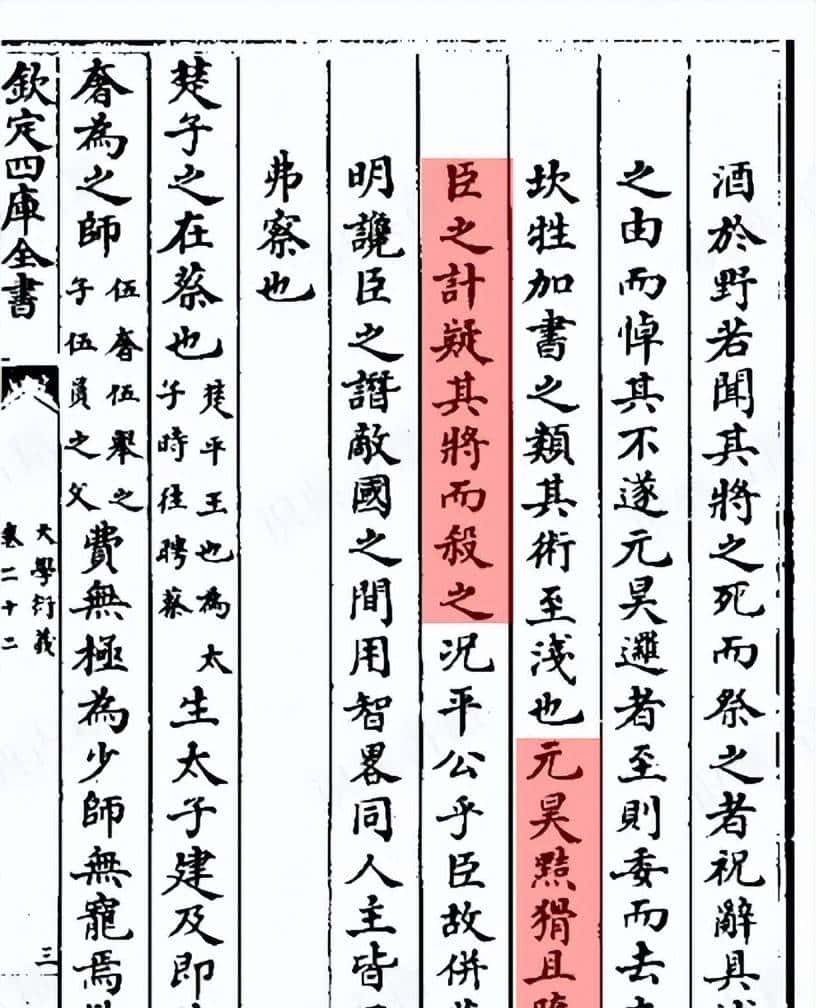 酒於野若聞其將之死而祭之者祝辭具
之由而悼其不遂元昊邏者至則委而去
坎牲加書之類其術至淺也元昊黠猾且
臣之計疑其將而殺之况平公乎臣故併
明讒臣之譖敵國之間用智畧同人主皆
弗察也
楚子之在蔡也楚平王也為太子時往聘蔡生太子建及即
奢為之師伍奢伍舉之子伍員之父費無極為少師無寵焉
欽定四庫全書
大學衍義
卷二十二
三